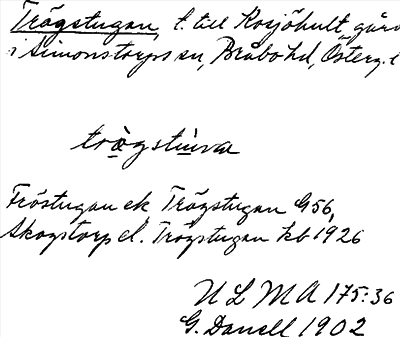 Trögstugan, t. till Rosjöhult, gård
i Simonstorps sn, Bråbo hd, Österg. l
trögstuva
Fröstugan ek Trögstugan G56,
Skogstorp el. Trögstugan kb 1926
ULMA 175:36
G. Danell 1902